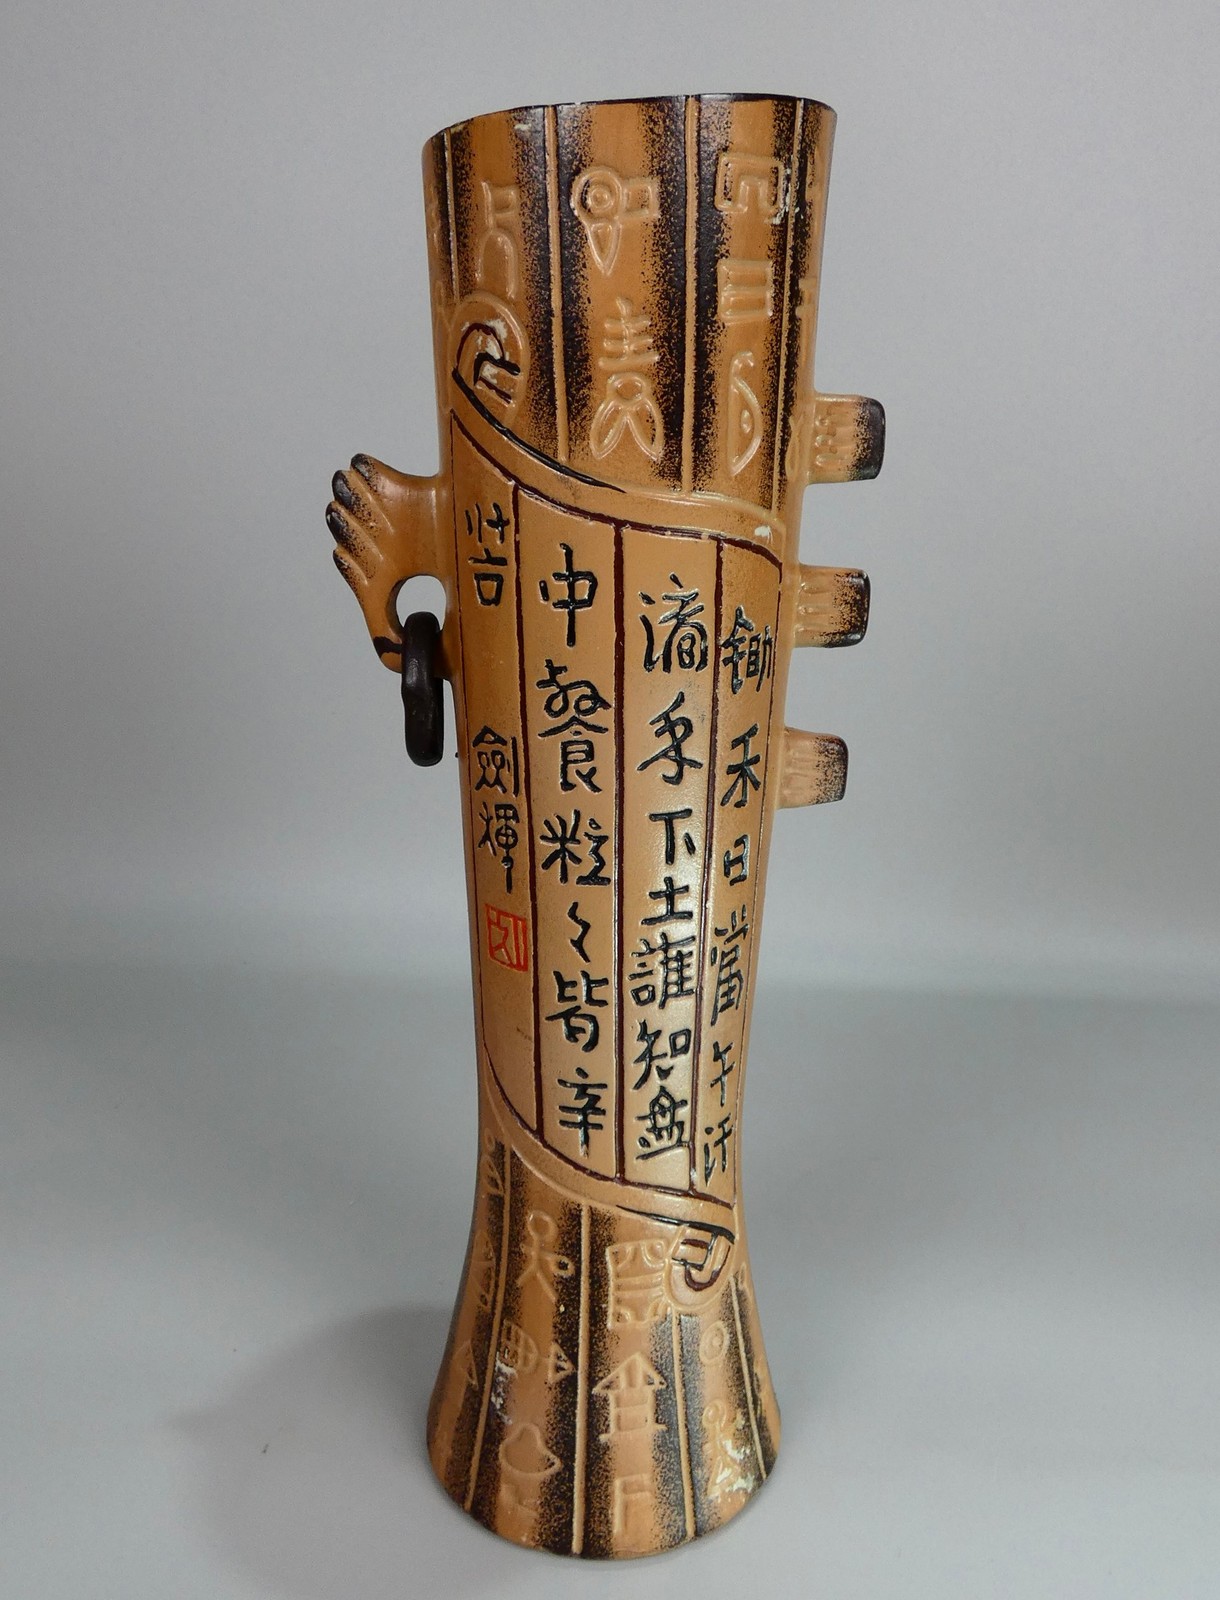 鋤禾日當午汗
滴禾下土誰知盤
中餐粒々皆辛
苦 劍揮